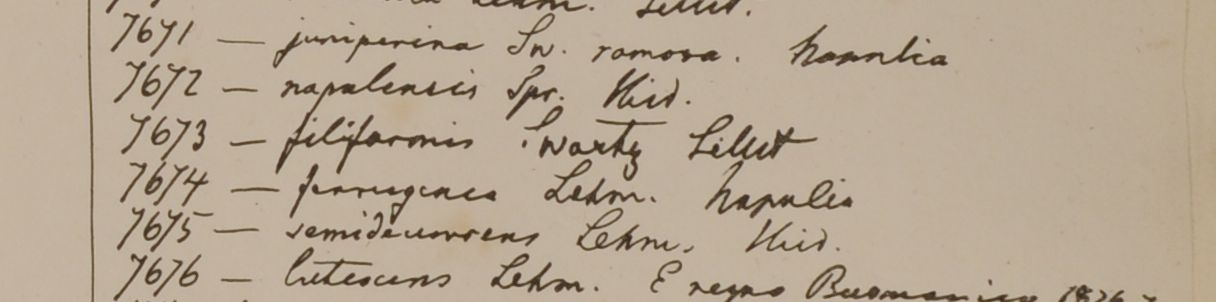 Lehm. Sillet.
7671 — juniperina Sw. ramosa. Napalia
7672 — napalensis Spr. Ibid.
7673 — filiformis Swartz Sillet
7674 — ferruginea Lehm. Napalia
7675 — semidecurrens Lehm. Ibid.
7676 — lutescens Lehm. E regno Burmanico 1826 -